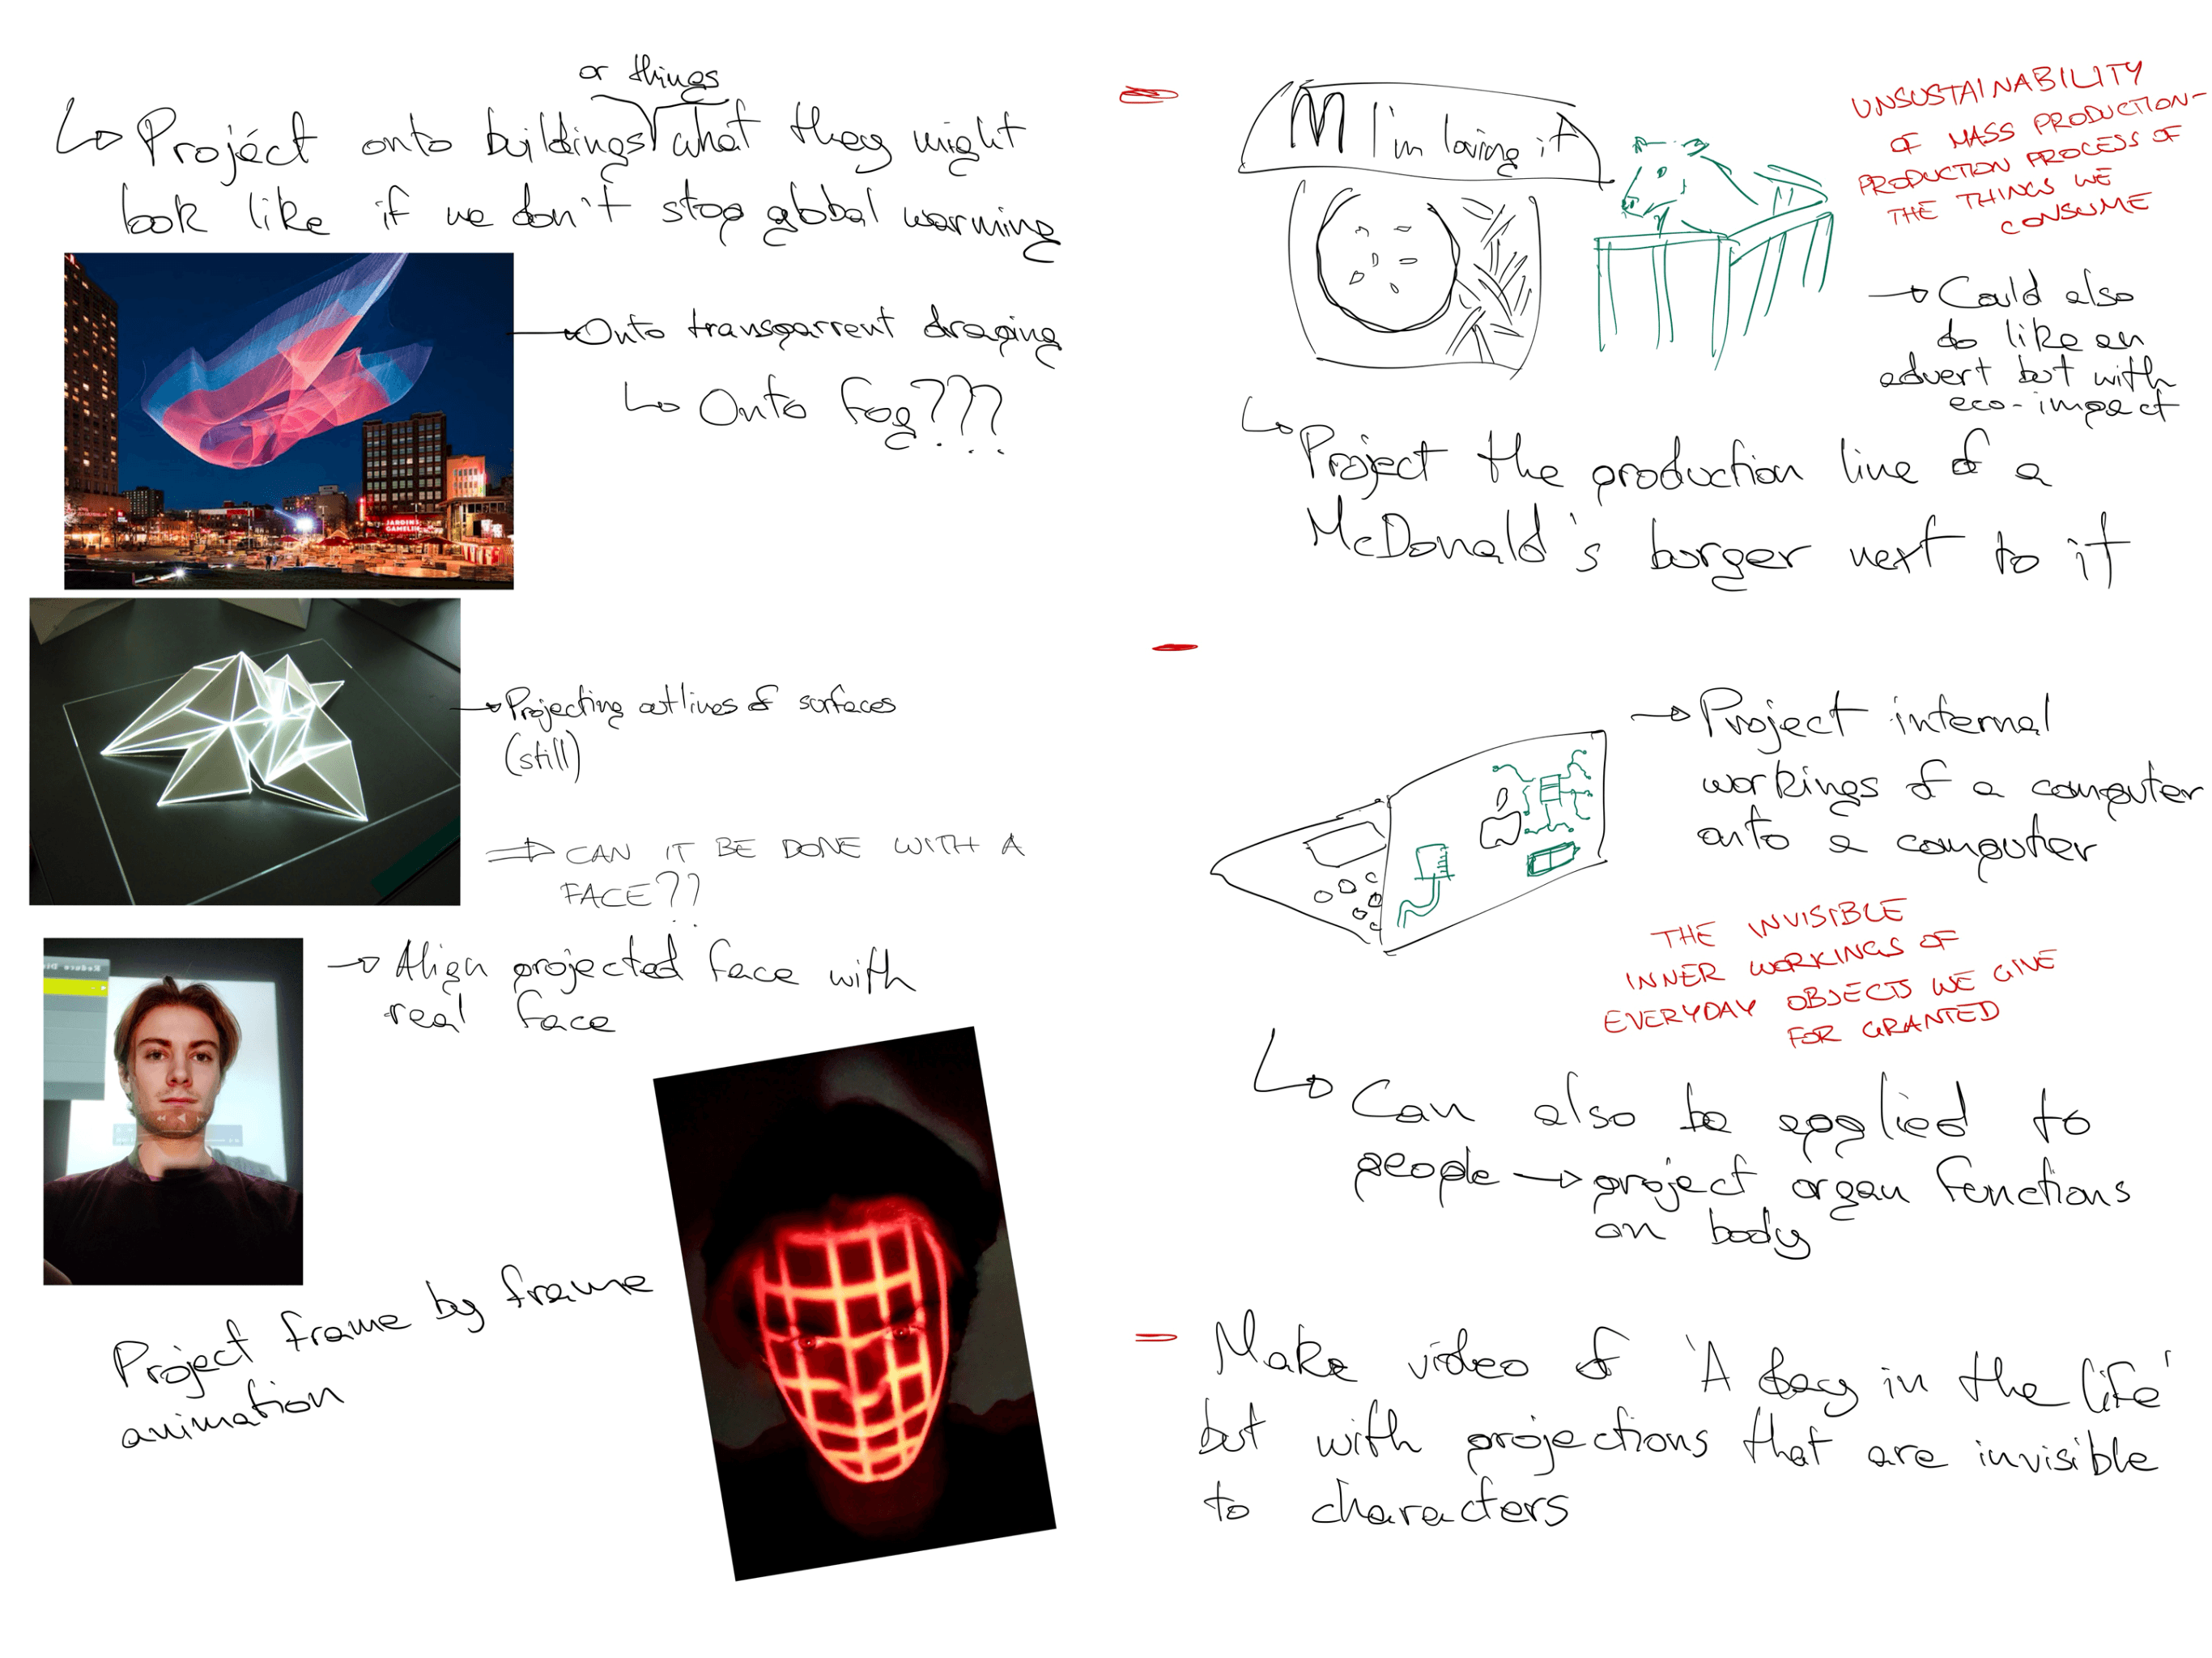 or things
↳ Project onto buildings what they might
look like if we don't stop global warming
→ Onto transparrent draping
↳ Onto fog???
JARDINS
GAMELIN
→ Projecting outlines of surfaces
(still)
⇒ CAN IT BE DONE WITH A
FACE??
→ Align projected face with
real face
Project frame by frame
animation
M I'm loving it
UNSUSTAINABILITY
OF MASS PRODUCTION-
PRODUCTION PROCESS OF
THE THINGS WE
CONSUME
→ Could also
do like an
advert but with
eco-impact
↳ Project the production line of a
McDonald's burger next to it
→ Project internal
workings of a computer
onto a computer
THE INVISIBLE
INNER WORKINGS OF
EVERYDAY OBJECTS WE GIVE
FOR GRANTED
↳ Can also be applied to
people → project organ functions
on body
- Make video of 'A day in the life'
but with projections that are invisible
to characters